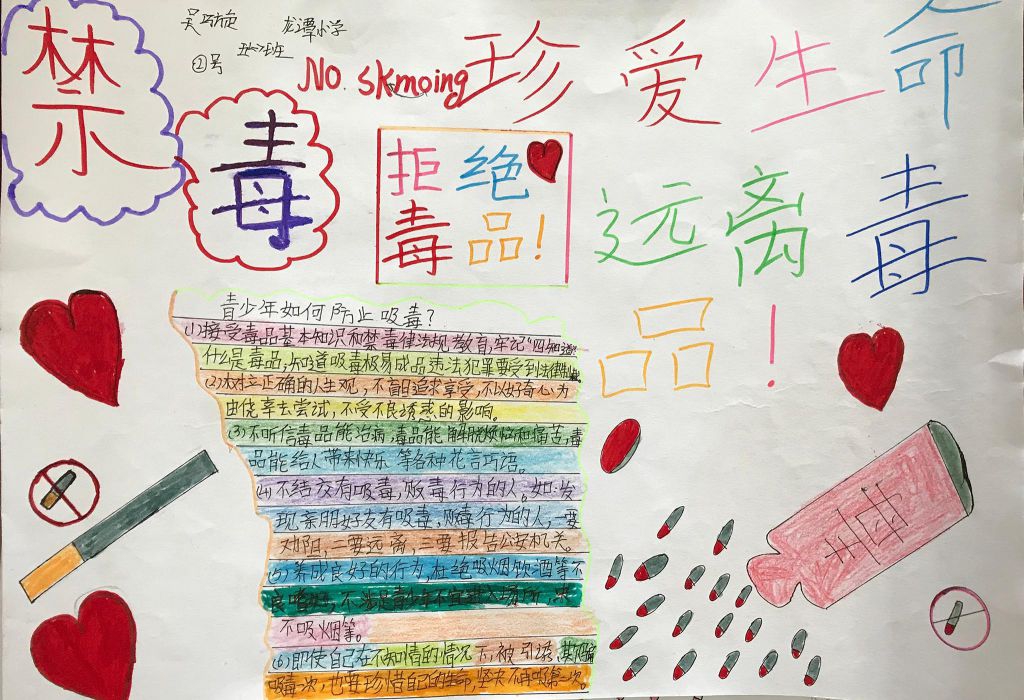 禁
毒
龙潭小学
号
NO. skmoing
珍爱生命
远离毒
品!
拒绝
毒品!
青少年如何防止吸毒?
(1)接受毒品基本知识和禁毒律法规教育,牢记“四知道”
什么是毒品,知道吸毒极易成品违法犯罪要受到法律制裁。
(2)树立正确的人生观,不盲目追求享受,不以好奇心为
由侥幸去尝试,不受不良诱惑的影响。
(3)不听信毒品能治病,毒品能解脱烦恼和痛苦,毒
品能给人带来快乐等各种花言巧语。
(4)不结交有吸毒,贩毒行为的人。如:发
现亲朋好友有吸毒,贩毒行为的人,一要
劝阻,二要远离,三要报告公安机关。
(5)养成良好的行为,杜绝吸烟饮酒等不
良嗜好,不涉足青少年不宜进入场所,决
不吸烟等。
(6)即使自己在不知情的情况下,被引诱、欺骗
吸毒一次,也要珍惜自己的生命,坚决不再吸第二次。
毒